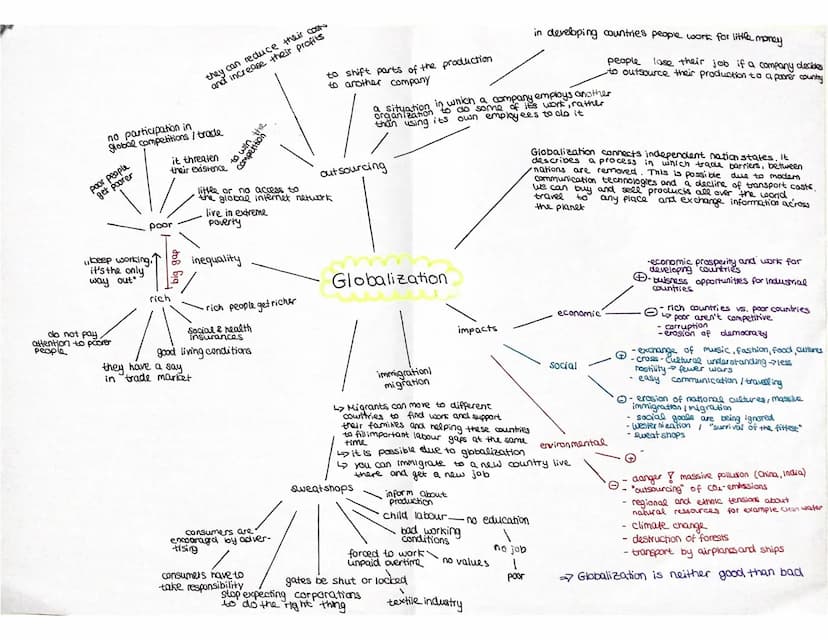 they can reduce their costs
and increase their profits
to shift parts of the production
to another company
in developing countries people work for little money
people lose their job if a company decides
to outsource their production to a poorer country
a situation in which a company employs another
organization to do some of its work, rather
than using its own employees to do it
to win the
competition
outsourcing
no participation in
global competitions / trade
it threaten
their existence
poor people
get poorer
little or no access to
the global internet network
live in extreme
poverty
poor
Globalization connects independent nation states. It
describes a process in which trade barriers, between
nations are removed. This is possible due to modern
communication technologies and a decline of transport costs.
we can buy and sell products all over the world
travel to any place and exchange information across
the planet
"keep working,
it's the only
way out"
big gap
inequality
Globalization
rich
rich people get richer
social & health
insurances
good living conditions
do not pay
attention to poorer
people
they have a say
in trade market
impacts
economic
+ -economic prosperity and work for
developing countries
- buisness opportunities for industrial
countries
- - rich countries vs. poor countries
↳ poor aren't competitive
- corruption
- erosion of democracy
social
+ - exchange of music, fashion, food, cultures
- cross-cultural understanding → less
hostility → fewer wars
- easy communication / travelling
- - erosion of national cultures, massive
immigration / migration
- social goals are being ignored
- westernisation / "survival of the fittest"
- sweatshops
environmental
+ -
- - danger ! massive pollution (China, India)
- "outsourcing" of CO₂-emissions
- regional and ethnic tensions about
natural resources for example clean water
- climate change
- destruction of forests
- transport by airplanes and ships
⇒ Globalization is neither good than bad
immigration/
migration
↳ Migrants can move to different
countries to find work and support
their families and helping these countries
to fill important labour gaps at the same
time
↳ it is possible due to globalization
↳ you can immigrate to a new country live
there and get a new job
sweatshops
inform about
production
child labour — no education
no job
poor
bad working
conditions
forced to work
unpaid overtime
no values
textile industry
gates be shut or locked
stop expecting corporations
to do the right thing
consumers have to
take responsibility
consumers are
encouraged by adver-
tising